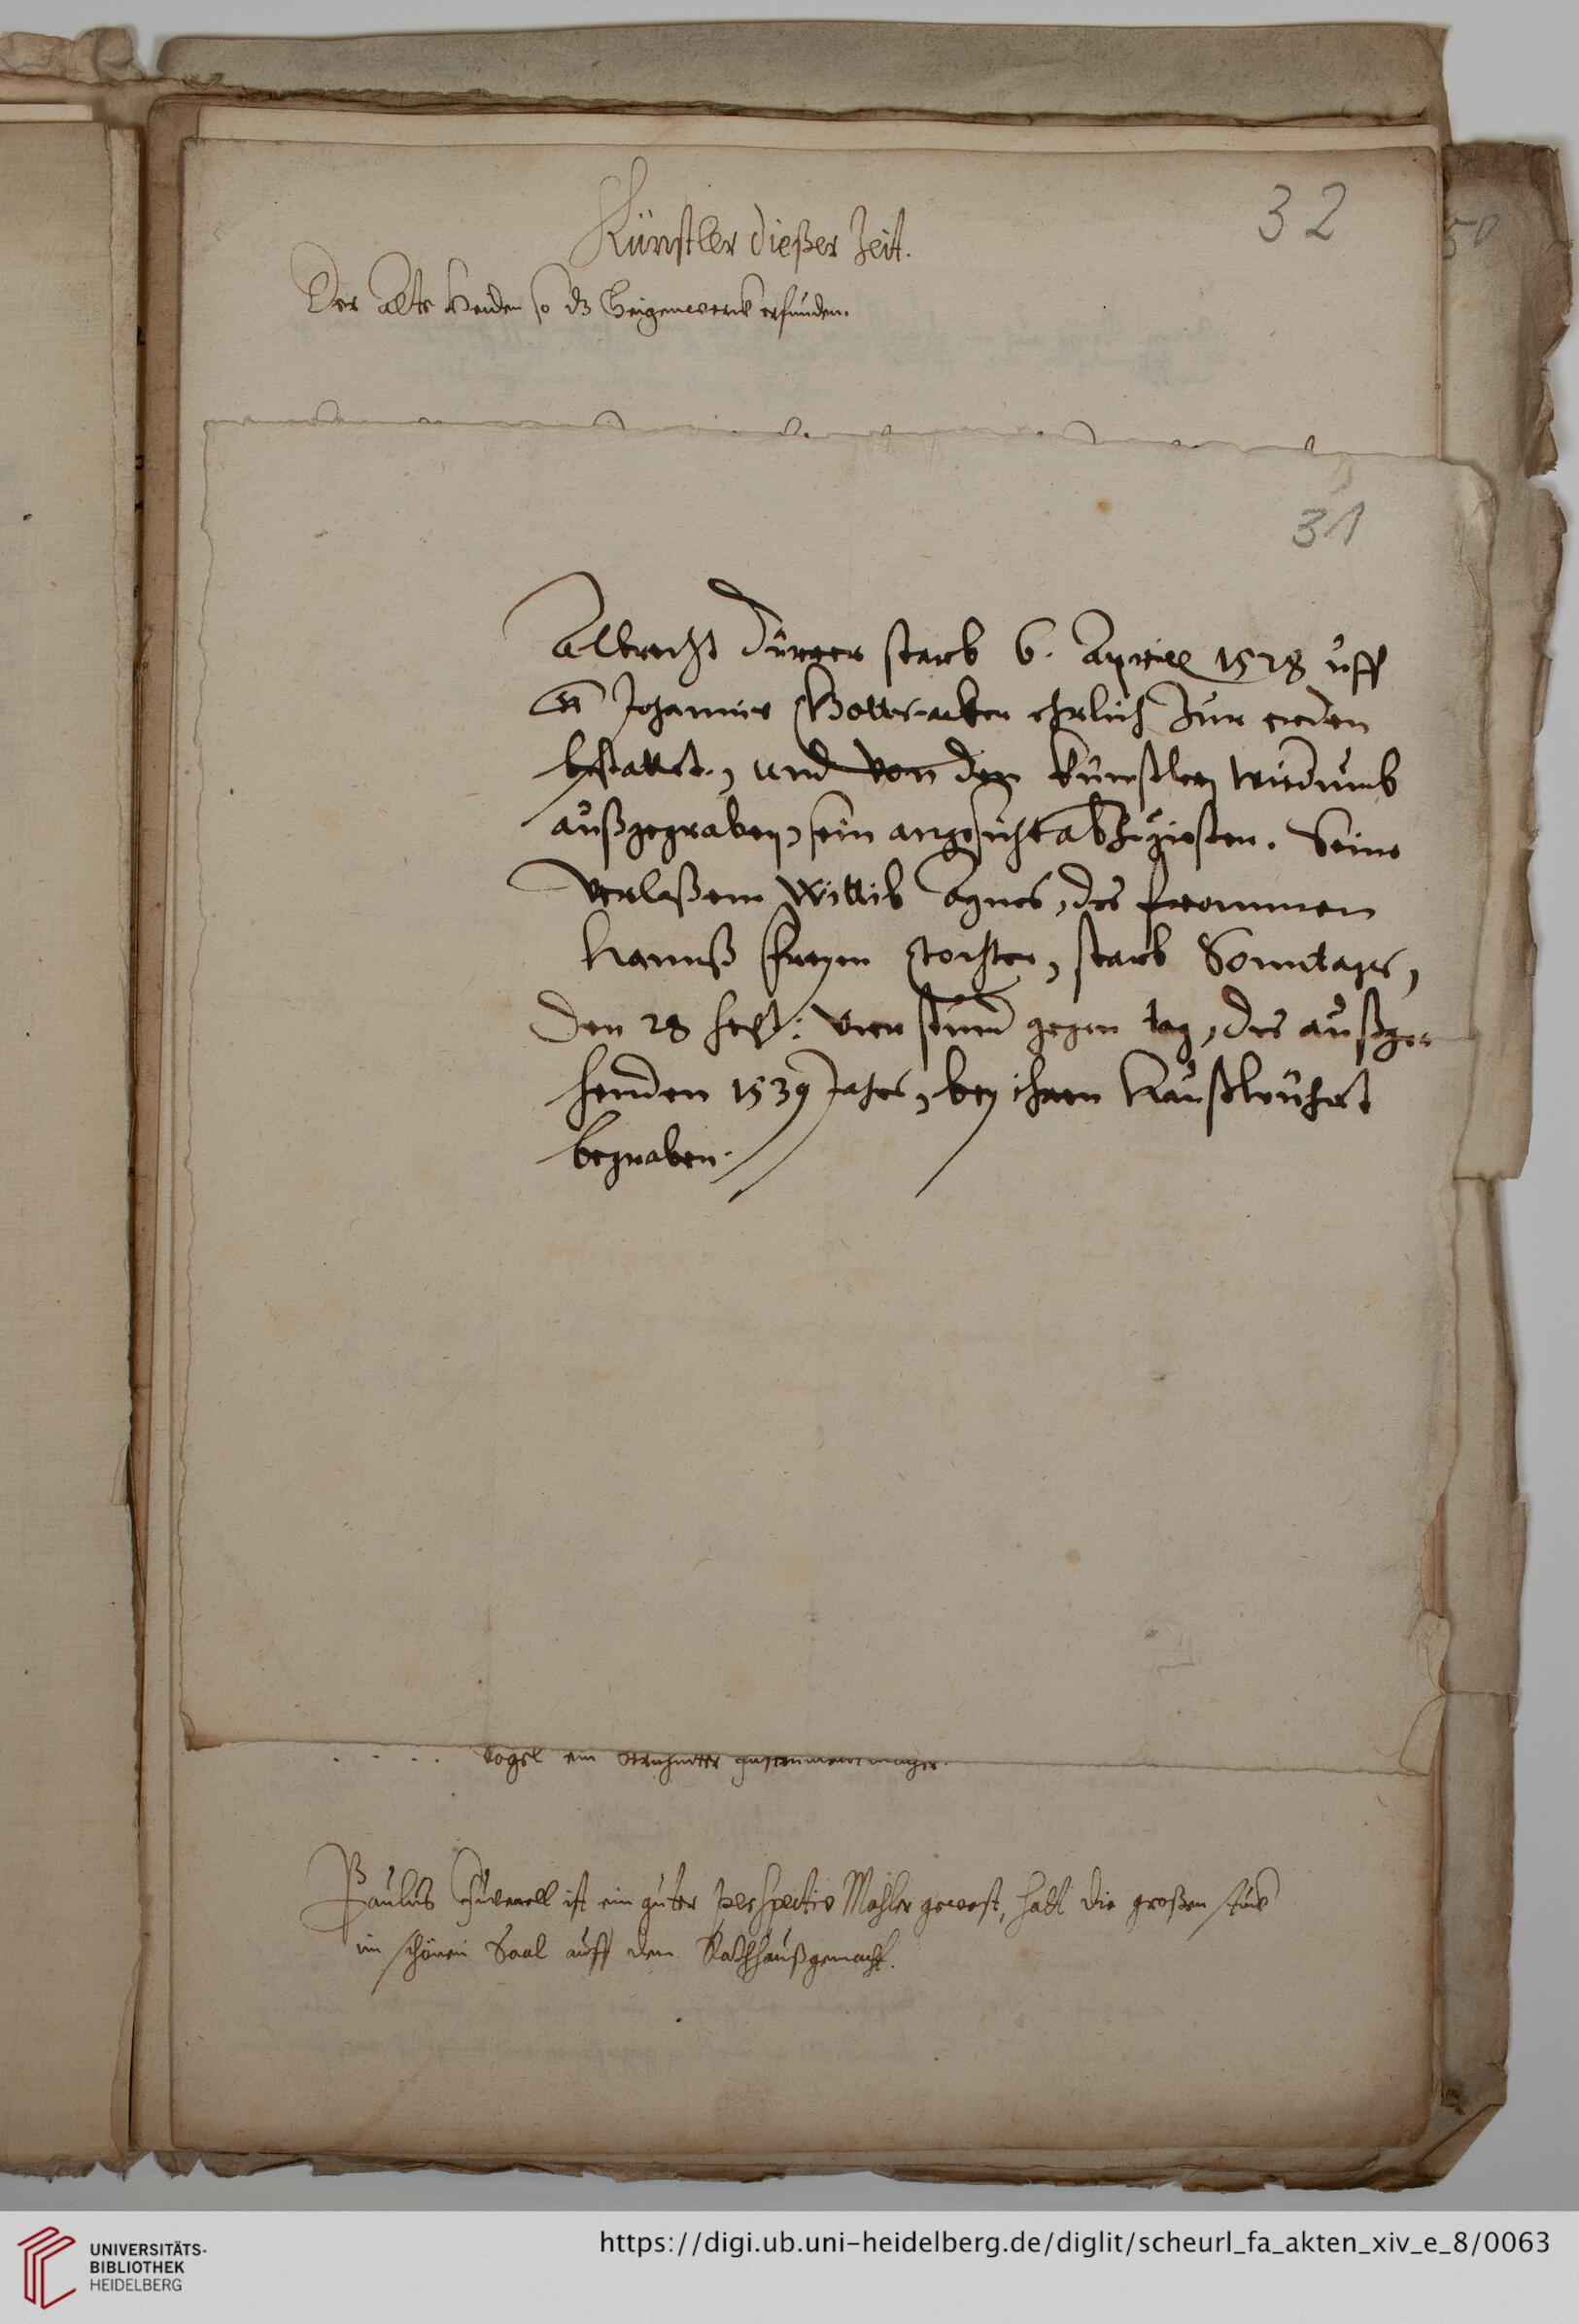 Künstler dießer Zeit.
32
50
Der alte Heiden so dz Geigenwerck erfunden.
31
Albrecht Dürrer starb 6. Aprill 1528 uff
S Johannis Gottsacker ehrlich zur erden
bestattet, und von den künstlern widrumb
außgegraben, sein angesicht abzugießen. Seine
verlaßene Wittib Agnes, des frommen
Hannß Freyen tochter, starb Sonntags,
den 28 Xbr: vier stund gegen tag, des außge-
henden 1539 Jahrs, bey ihren Haußwührt
begraben.
. . . . Vogel ein berühmter Instrumentmacher.
Paulus Juvenell ist ein guter perspectiv Mahler gewest, hatt die großen stück
im schönen Saal auff dem Rathhauß gemacht.
UNIVERSITÄTS-
BIBLIOTHEK
HEIDELBERG
https://digi.ub.uni-heidelberg.de/diglit/scheurl_fa_akten_xiv_e_8/0063